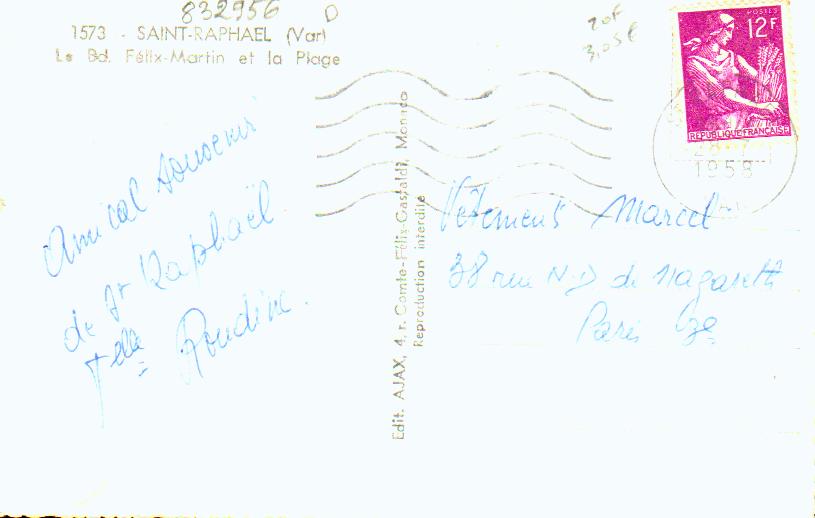 832956 D
1573 - SAINT-RAPHAEL (Var)
Le Bd. Félix-Martin et la Plage
20F
3,05€
POSTES
12F
REPUBLIQUE FRANÇAISE
1958
Amical Souvenir
de St Raphaël
Edit. AJAX, 4, r. Comte-Félix-Gastaldi, Monaco
Reproduction interdite
Vêtements Marcel
38 rue N-D de Nazareth
Paris